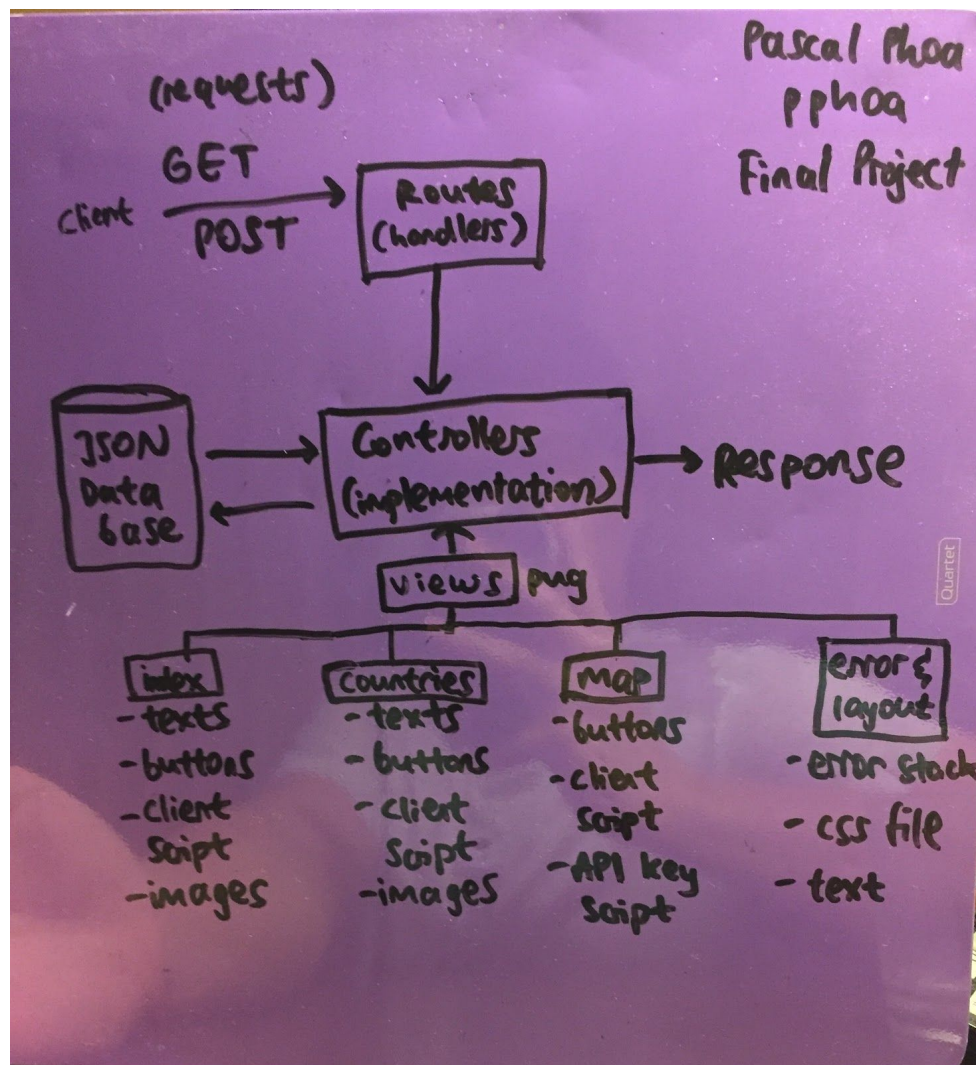 Pascal Phoa
pphoa
Final Project
(requests)
GET
Client
POST
Routes
(handlers)
JSON
Data
base
Controllers
(implementation)
Response
Quartet
views pug
index
- texts
- buttons
- client
script
- images
countries
- texts
- buttons
- client
script
- images
map
- buttons
- client
script
- API key
script
error &
layout
- error stack
- css file
- text